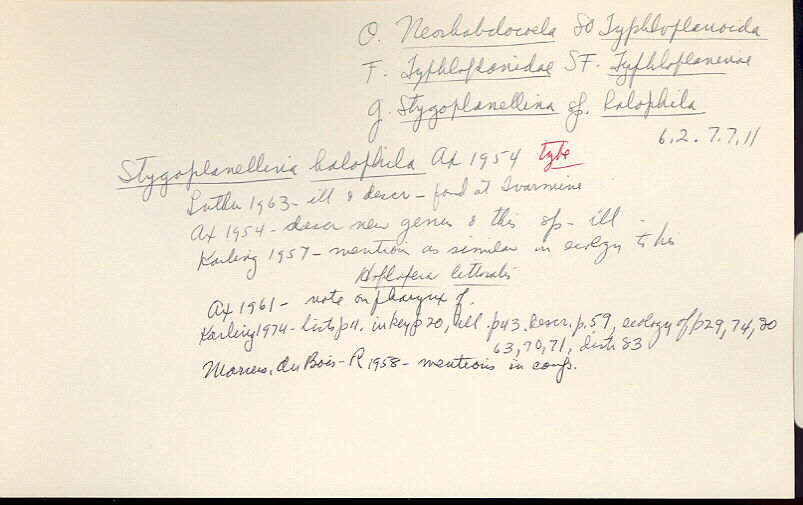 O. Neorhabdocoela SO Typhloplanoida
F. Typhloplanidae SF. Typhloplaninae
g. Stygoplanellina sp. halophila
6.2.7.7.11
Stygoplanellina halophila Ax 1954 type
Luther 1963 - ill & descr - found at Tvarminne
Ax 1954 - descr new genus & this sp - ill -
Karling 1957 - mention as similar in ecology to his
Hoplopera littoralis
Ax 1961 - note on pharynx of.
Karling 1974 - lists p11, in key p20, ill. p43. Descr. p.59, ecology of p29, 74, 80
63, 70, 71, distr 83
Marcus, du Bois-R 1958 - mentions in comp.